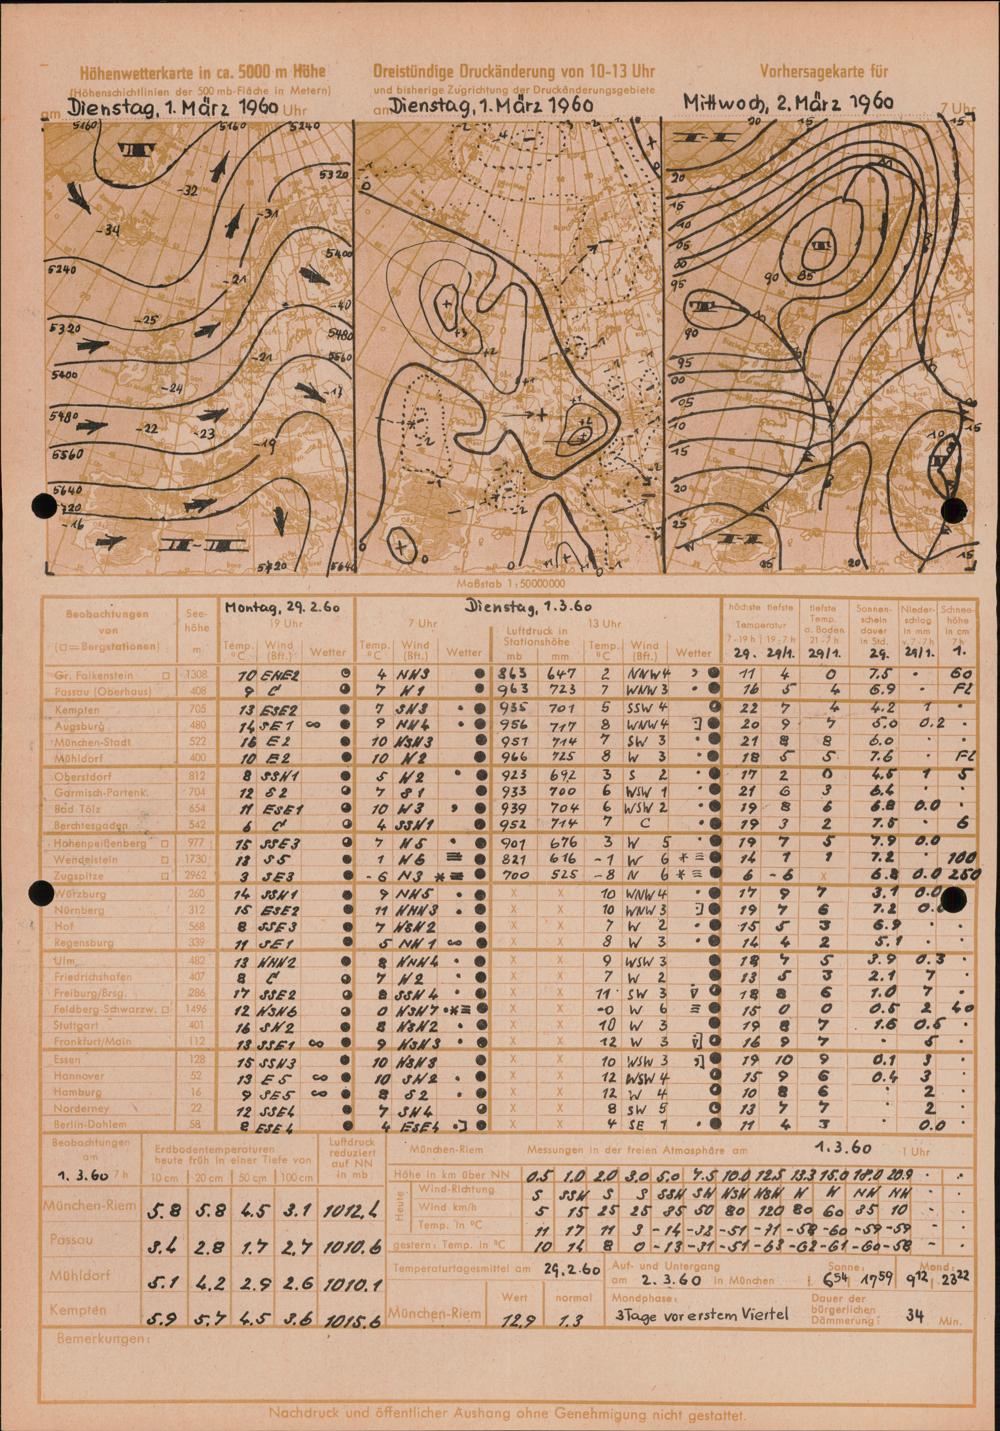 Höhenwetterkarte in ca. 5000 m Höhe
(Höhenschichtlinien der 500 mb-Fläche in Metern)
am Dienstag, 1. März 1960 Uhr
Dreistündige Druckänderung von 10-13 Uhr
und bisherige Zugrichtung der Druckänderungsgebiete
am Dienstag, 1. März 1960
Vorhersagekarte für
Mittwoch, 2. März 1960 7 Uhr
Maßstab 1:50000000
Beobachtungen von (□=Bergstationen) See-höhe m
Montag, 29.2.60 19 Uhr Temp. °C Wind (Bft.) Wetter
Dienstag, 1.3.60
7 Uhr Temp. °C Wind (Bft.) Wetter
13 Uhr Luftdruck in Stationshöhe mb mm Temp. °C Wind (Bft.) Wetter
höchste tiefste Temperatur 7-19h 19-7h 29. 29/1.
tiefste Temp. a. Boden 21-7h 29/1.
Sonnen-schein dauer in Std. 29.
Nieder-schlag in mm v. 7-7h 29/1.
Schnee-höhe in cm 7h 1.
Gr. Falkenstein □ 1308 10 ENE2 4 NN3 863 647 2 NNW4 11 4 0 7.5 · 60
Passau (Oberhaus) 408 9 C 7 N1 963 723 7 WNW3 16 5 4 6.9 · FL
Kempten 705 13 ESE2 7 SN3 935 701 5 SSW4 22 7 4 4.2 1 ·
Augsburg 480 14 SE1 ∞ 9 NN4 956 717 8 WNW4 20 9 7 5.0 0.2 ·
München-Stadt 522 16 E2 10 NSN3 951 714 7 SW 3 21 8 8 6.0 · ·
Mühldorf 400 10 E2 10 N2 966 725 8 W 3 18 5 5 7.6 · FL
Oberstdorf 812 8 SSN1 5 N2 923 692 3 S 2 17 2 0 4.5 1 5
Garmisch-Partenk. 704 12 S2 7 S1 933 700 6 WSW 1 21 6 3 6.4 · ·
Bad Tölz 654 11 ESE1 10 W3 939 704 6 WSW 2 19 8 6 6.8 0.0 ·
Berchtesgaden 542 6 C 4 SSN1 952 714 7 C 19 3 2 7.5 · 6
Hohenpeißenberg □ 977 15 SSE3 7 N5 901 676 3 W 5 19 7 5 7.9 0.0
Wendelstein □ 1730 13 S5 1 N6 821 616 -1 W 6 14 1 1 7.2 · 100
Zugspitze □ 2962 3 SE3 -6 N3 700 525 -8 N 6 6 -6 x 6.8 0.0 250
Würzburg 260 14 SSN1 9 NN5 x x 10 WNW4 17 9 7 3.1 0.0
Nürnberg 312 15 ESE2 11 NNN3 x x 10 WNW3 19 7 6 7.2
Hof 568 8 SSE3 7 NSN2 x x 7 W 2 15 5 3 6.9 · ·
Regensburg 339 11 SE1 5 NN1 ∞ x x 8 W 3 14 4 2 5.1 · ·
Ulm 482 13 NNN2 8 NNN4 x x 9 WSW 3 18 7 5 3.9 0.3 ·
Friedrichshafen 407 8 C 7 N2 x x 7 W 2 13 5 3 2.1 7 ·
Freiburg/Brsg. 286 17 SSE2 8 SSN4 x x 11 SW 3 18 8 6 1.0 7 ·
Feldberg-Schwarzw. □ 1496 12 NSN6 0 NSN7 x x -0 W 6 15 0 0 0.5 2 40
Stuttgart 401 16 SN2 8 NSN2 x x 10 W 3 19 8 7 1.6 0.5 ·
Frankfurt/Main 112 13 SSE1 ∞ 9 NSN3 x x 12 W 3 16 9 7 · 5 ·
Essen 128 15 SSN3 10 NSN3 x x 10 WSW 3 19 10 9 0.1 3 ·
Hannover 52 13 E5 ∞ 10 SN2 x x 12 WSW 4 15 9 6 0.4 3 ·
Hamburg 16 9 SE5 ∞ 8 S2 x x 12 W 4 10 8 6 · 2 ·
Norderney 22 12 SSE4 7 SN4 x x 8 SW 5 13 7 7 · 2 ·
Berlin-Dahlem 58 8 ESE4 4 ESE4 x x 4 SE 1 11 4 3 · 0.0 ·
Beobachtungen am 1.3.60 7h
Erdbodentemperaturen heute früh in einer Tiefe von
10 cm 20 cm 50 cm 100 cm
Luftdruck reduziert auf NN in mb
München-Riem 5.8 5.8 4.5 3.1 1012.4
Passau 3.4 2.8 1.7 2.7 1010.6
Mühldorf 5.1 4.2 2.9 2.6 1010.1
Kempten 5.9 5.7 4.5 3.6 1015.6
München-Riem Messungen in der freien Atmosphäre am 1.3.60 1 Uhr
Höhe in km über NN 0.5 1.0 2.0 3.0 5.0 7.5 10.0 12.5 13.3 15.0 18.0 20.9 · ·
Heute
Wind-Richtung S SSN S S SSN SN NSN NSN N N NN NN · ·
Wind km/h 5 15 25 25 35 50 80 120 80 60 35 10 · ·
Temp. in °C 11 17 11 3 -14 -32 -51 -71 -58 -60 -59 -59 · ·
gestern: Temp. in °C 10 14 8 0 -13 -31 -51 -63 -62 -61 -60 -58 - ·
Temperaturtagesmittel am 29.2.60
Wert normal
München-Riem 12.9 1.3
Auf- und Untergang am 2.3.60 in München
Sonne: 6 54 17 59
Mond: 9 12 23 22
Mondphase: 3 Tage vor erstem Viertel
Dauer der bürgerlichen Dämmerung: 34 Min.
Bemerkungen:
Nachdruck und öffentlicher Aushang ohne Genehmigung nicht gestattet.